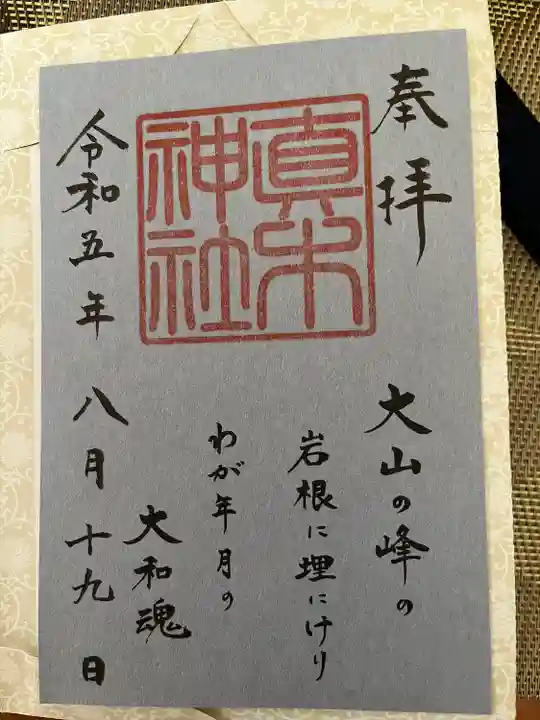 奉拝
大山の峰の
岩根に埋にけり
わが年月の
大和魂
真木神社
令和五年八月十九日